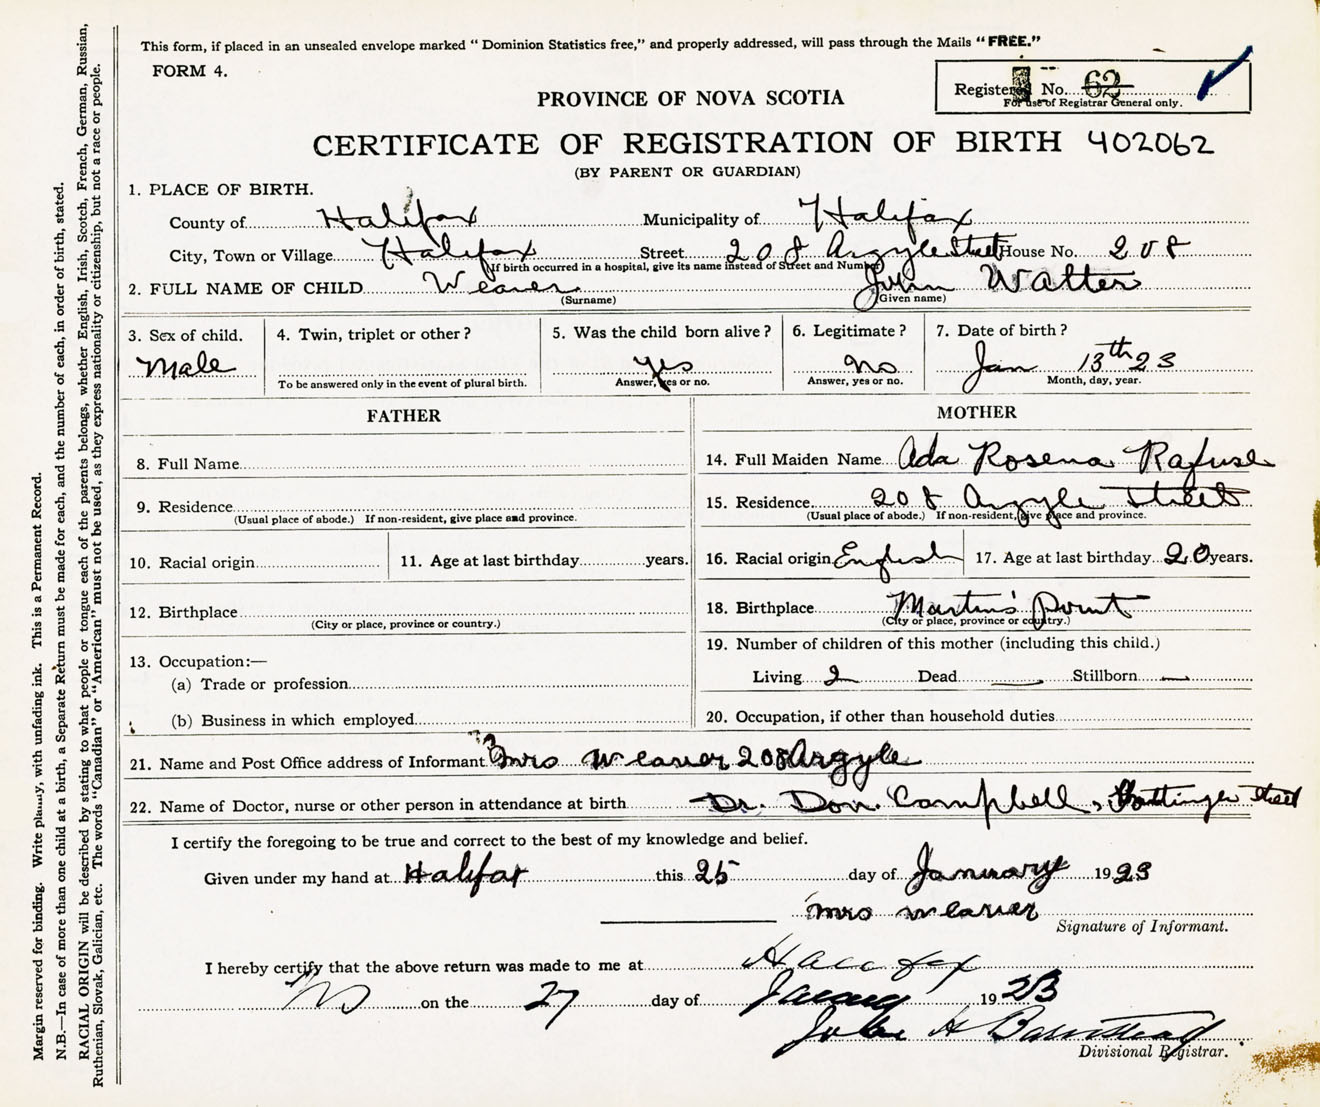 This form, if placed in an unsealed envelope marked " Dominion Statistics free," and properly addressed, will pass through the Mails "FREE."
FORM 4.
Registered No. 62
For use of Registrar General only.
PROVINCE OF NOVA SCOTIA
CERTIFICATE OF REGISTRATION OF BIRTH 402062
(BY PARENT OR GUARDIAN)
1. PLACE OF BIRTH.
County of Halifax Municipality of Halifax
City, Town or Village Halifax Street 208 Argyle Street House No. 208
(If birth occurred in a hospital, give its name instead of Street and Number)
2. FULL NAME OF CHILD Weaver John Walter
(Surname) (Given name)
3. Sex of child. 4. Twin, triplet or other? 5. Was the child born alive? 6. Legitimate? 7. Date of birth?
Male yes no Jan 13th 23
To be answered only in the event of plural birth. Answer, yes or no. Answer, yes or no. Month, day, year.
FATHER MOTHER
8. Full Name 14. Full Maiden Name Ada Rosena Rafuse
9. Residence 15. Residence 208 Argyle Street
(Usual place of abode.) If non-resident, give place and province. (Usual place of abode.) If non-resident, give place and province.
10. Racial origin 11. Age at last birthday years. 16. Racial origin English 17. Age at last birthday 20 years.
12. Birthplace 18. Birthplace Martins' Point
(City or place, province or country.) (City or place, province or country.)
13. Occupation:— 19. Number of children of this mother (including this child.)
(a) Trade or profession Living 2 Dead — Stillborn —
(b) Business in which employed 20. Occupation, if other than household duties
21. Name and Post Office address of Informant Mrs Weaver 208 Argyle
22. Name of Doctor, nurse or other person in attendance at birth Dr. Don. Campbell, Street
I certify the foregoing to be true and correct to the best of my knowledge and belief.
Given under my hand at Halifax this 25 day of January 1923
Mrs Weaver
Signature of Informant.
I hereby certify that the above return was made to me at Halifax
on the 27 day of January 1923
John H Barnstead
Divisional Registrar.
Margin reserved for binding. Write plainly, with unfading ink. This is a Permanent Record.
N.B.—In case of more than one child at a birth, a Separate Return must be made for each, and the number of each, in order of birth, stated.
RACIAL ORIGIN will be described by stating to what people or tongue each of the parents belongs, whether English, Irish, Scotch, French, German, Russian,
Ruthenian, Slovak, Galician, etc. The words "Canadian" or "American" must not be used, as they express nationality or citizenship, but not a race or people.